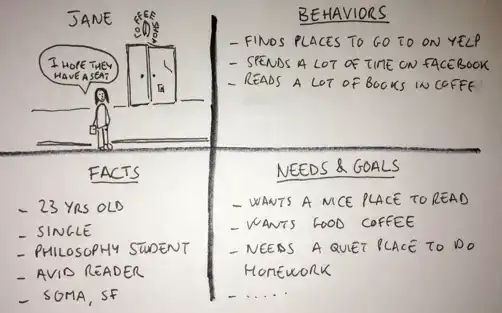 JANE
COFFEE
I HOPE THEY
HAVE A SEAT
BEHAVIORS
- FINDS PLACES TO GO TO ON YELP
- SPENDS A LOT OF TIME ON FACEBOOK
- READS A LOT OF BOOKS IN COFFE
FACTS
- 23 YRS OLD
- SINGLE
- PHILOSOPHY STUDENT
- AVID READER
- SOMA, SF
NEEDS & GOALS
- WANTS A NICE PLACE TO READ
- WANTS GOOD COFFEE
- NEEDS A QUIET PLACE TO DO
HOMEWORK
- .....